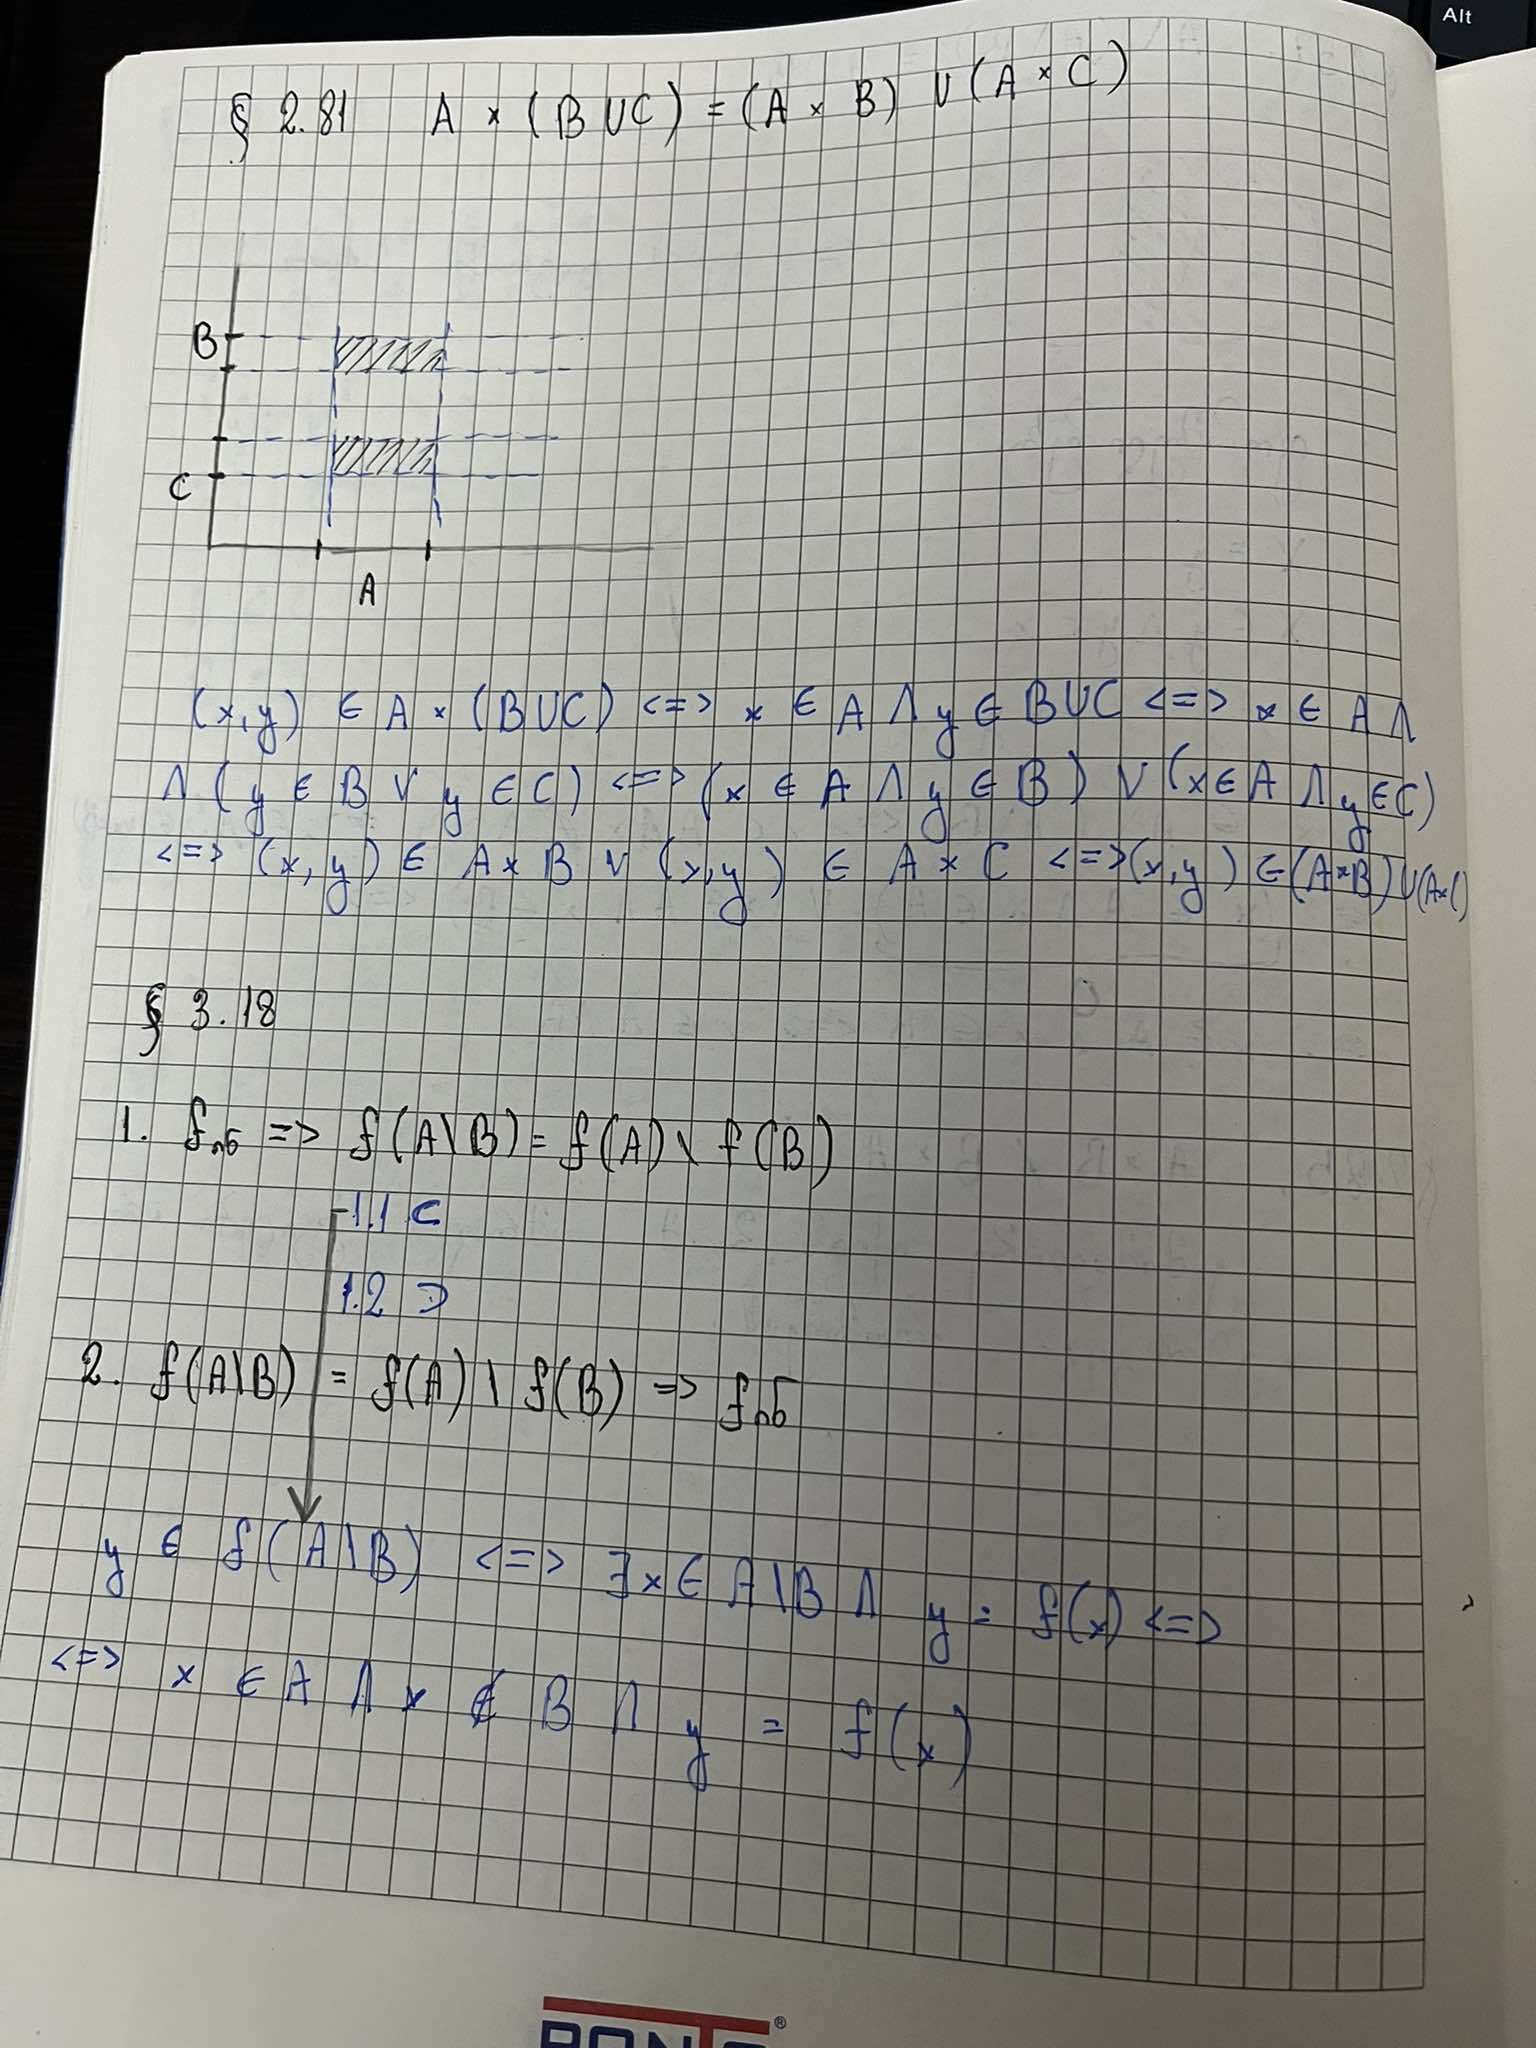 Alt
§ 2.81 A × (B ∪ C) = (A × B) ∪ (A × C)
B
C
A
(x,y) ∈ A × (B ∪ C) <=> x ∈ A ∧ y ∈ B ∪ C <=> x ∈ A ∧
∧ (y ∈ B ∨ y ∈ C) <=> (x ∈ A ∧ y ∈ B) ∨ (x ∈ A ∧ y ∈ C)
<=> (x,y) ∈ A × B ∨ (x,y) ∈ A × C <=> (x,y) ∈ (A×B) ∪ (A×C)
§ 3.18
1. fпб => f(A\B) = f(A) \ f(B)
1.1 ⊂
1.2 ⊃
2. f(A\B) = f(A) \ f(B) => fпб
y ∈ f(A\B) <=> ∃x ∈ A\B ∧ y = f(x) <=>
<=> x ∈ A ∧ x ∉ B ∧ y = f(x)